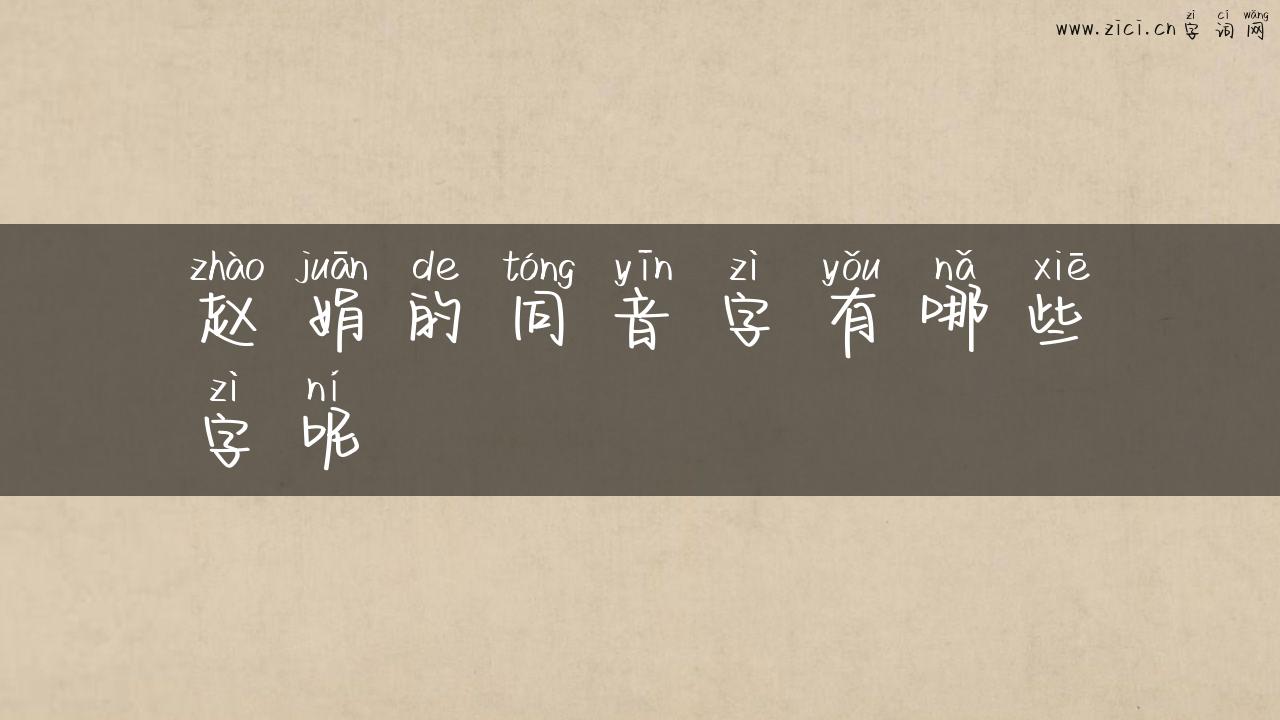 zì cí wǎng
www.zici.cn 字 词 网
zhào juān de tóng yīn zì yǒu nǎ xiē
赵 娟 的 同 音 字 有 哪 些
zì ní
字 呢